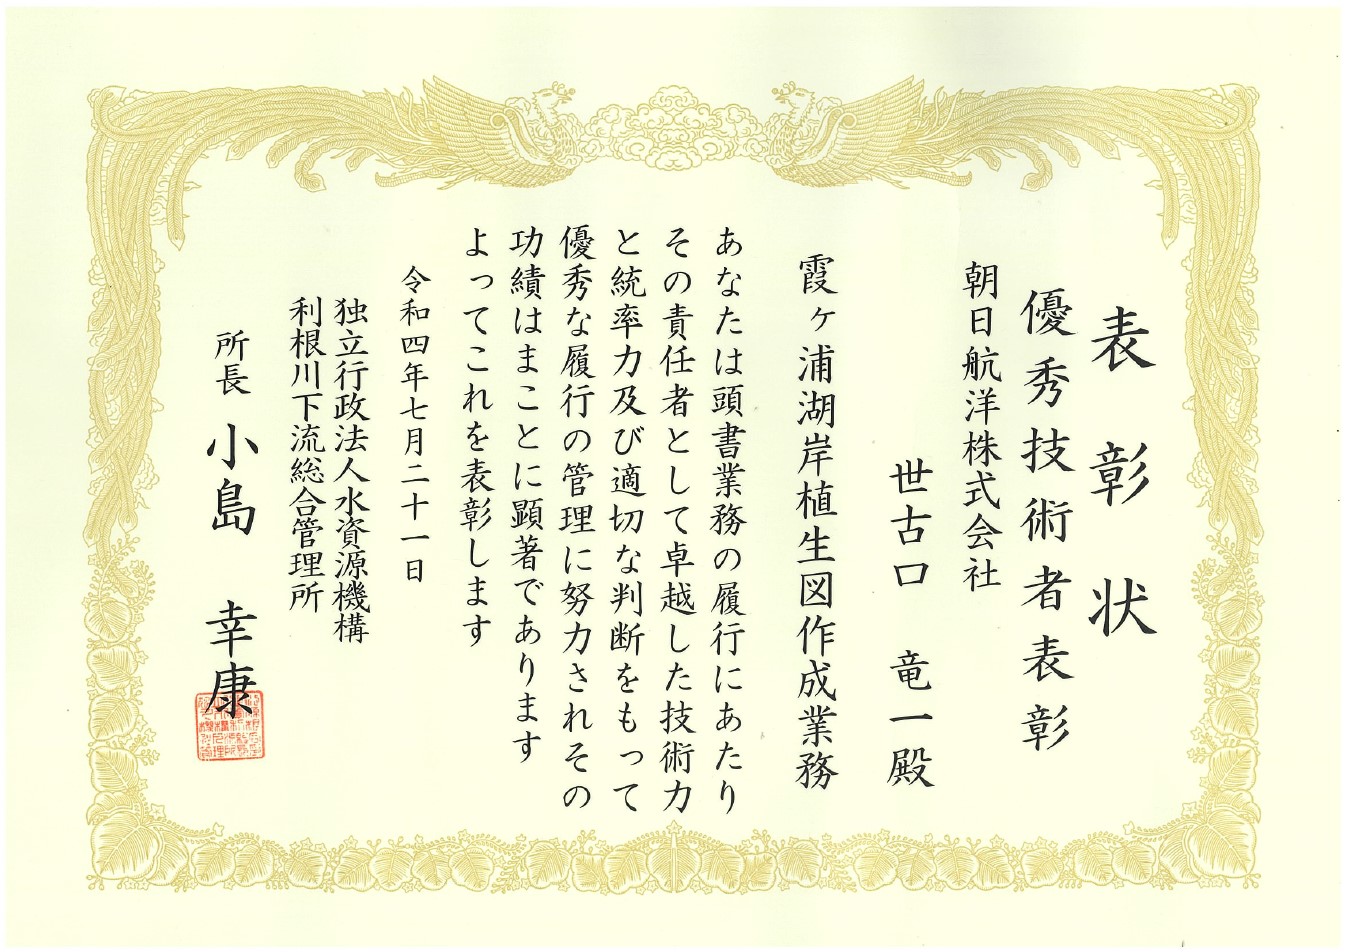 表彰状
優秀技術者表彰
朝日航洋株式会社
世古口 竜一殿
霞ヶ浦湖岸植生図作成業務
あなたは頭書業務の履行にあたり
その責任者として卓越した技術力
と統率力及び適切な判断をもって
優秀な履行の管理に努力されその
功績はまことに顕著であります
よってこれを表彰します
令和四年七月二十一日
独立行政法人水資源機構
利根川下流総合管理所
所長 小島 幸康